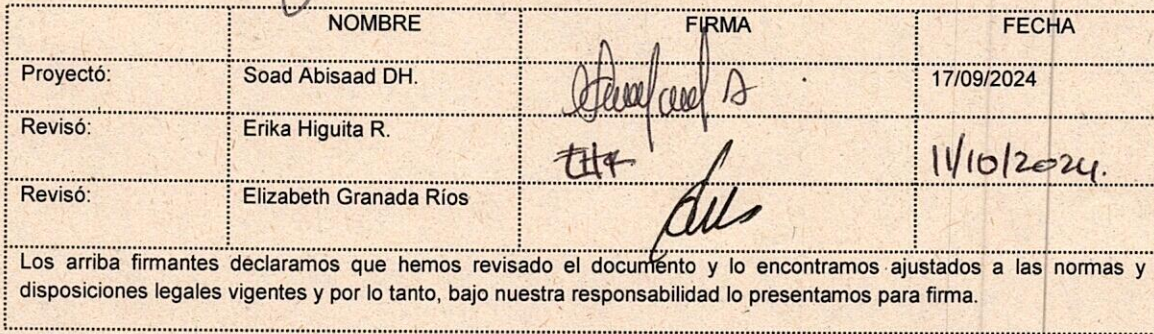 NOMBRE FIRMA FECHA
Proyectó: Soad Abisaad DH. 17/09/2024
Revisó: Erika Higuita R. EHR 11/10/2024.
Revisó: Elizabeth Granada Ríos
Los arriba firmantes declaramos que hemos revisado el documento y lo encontramos ajustados a las normas y
disposiciones legales vigentes y por lo tanto, bajo nuestra responsabilidad lo presentamos para firma.